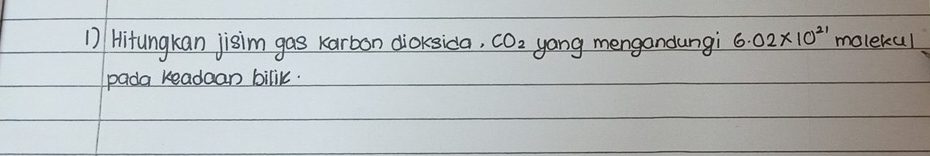 1) Hitungkan jisim gas karbon dioksida, CO₂ yang mengandungi 6.02×10²¹ molekul
pada keadaan bilik.